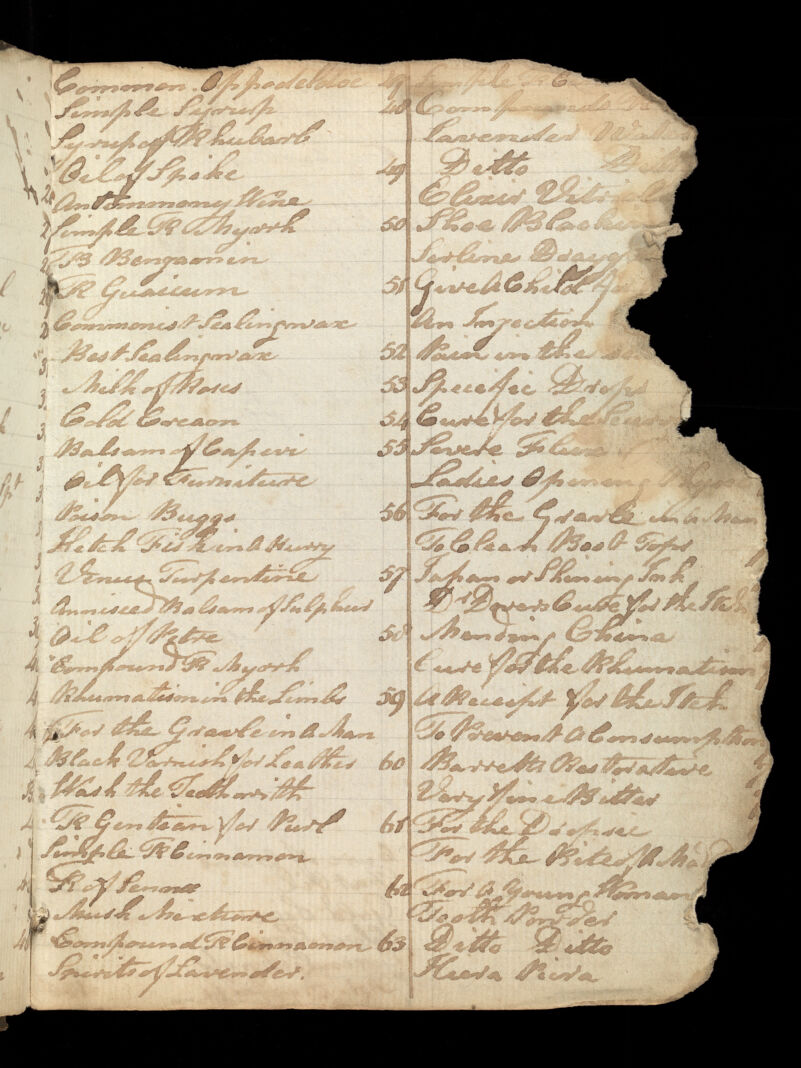 Common Oppodeldoc
Simple Syrup
Syrup of Rhubarb
Oil of Spike
Antimmony Wine
Simple R Myrrh
R Bengamin
R Guaicum
Commonist Sealingwax
Best Sealingwax
Milk of Roses
Cold Cream
Balsam of Capivi
Oil for Furniture
Poison Buggs
Hetch Fish in A Hurry
Venus Turpentine
Anniseed Balsam of Sulphur
Oil of Petre
Compound R Myrrh
Rhumatism in the Limbs
For the Gravle in A Man
Black Varnish for Leather
Wash the Teeth with
R Gentean for Purl
Simple R Cinnamon
R of Senna
Mush Mixture
Compound R Cinnamon
Spirits of Lavender.
49 Simple R
48 Compound
Lavender Water
49 Ditto
Elixir
50 Shoe
51 Give A Child
An Injection
52 Pain in the
53 Specific Drops
54 Cure for the
55 Severe
Ladies Opening
56 For the Gravle in A Man
To Clean Boot Tops
57 Japan or Shining Ink
Dr Dovers Cure for the Itch
58 Mending China
Cure for the Rhumatism
59 A Receipt for the Itch
To Prevent A Consumption
60 Barretts Restorative
Very fine Bitter
61 For the Dropsie
For the Bite of A
62 For A Young Woman
Tooth Powder
63 Ditto Ditto
Hiera Picra